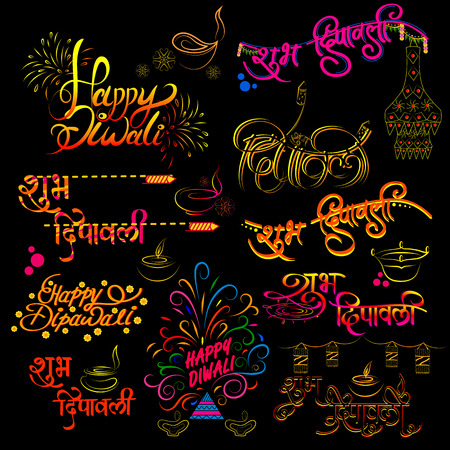 Happy
Diwali
शुभ दिपावली
दिपावली
शुभ
दिपावली
शुभ दिपावली
Happy
Dipawali
शुभ
दिपावली
HAPPY
DIWALI
शुभ
दिपावली
शुभ
दिपावली